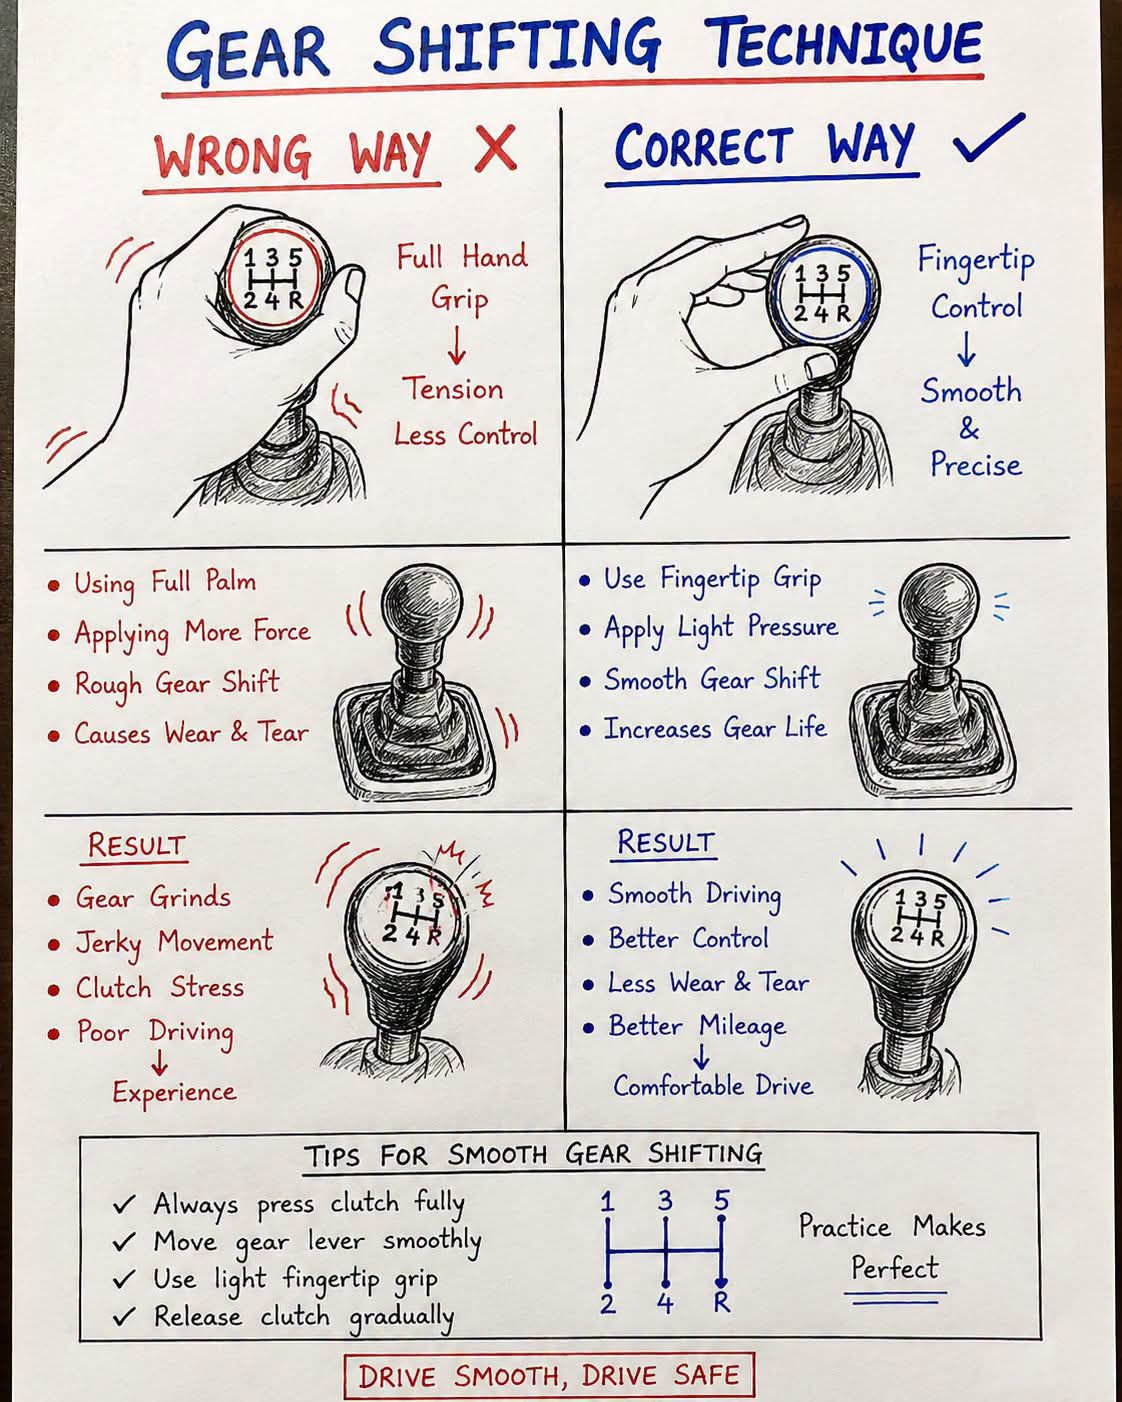 GEAR SHIFTING TECHNIQUE
WRONG WAY ✗
1 3 5
2 4 R
Full Hand
Grip
↓
Tension
Less Control
• Using Full Palm
• Applying More Force
• Rough Gear Shift
• Causes Wear & Tear
RESULT
• Gear Grinds
• Jerky Movement
• Clutch Stress
• Poor Driving
↓
Experience
1 3 5
2 4 R
CORRECT WAY ✓
1 3 5
2 4 R
Fingertip
Control
↓
Smooth
&
Precise
• Use Fingertip Grip
• Apply Light Pressure
• Smooth Gear Shift
• Increases Gear Life
RESULT
• Smooth Driving
• Better Control
• Less Wear & Tear
• Better Mileage
↓
Comfortable Drive
1 3 5
2 4 R
TIPS FOR SMOOTH GEAR SHIFTING
✓ Always press clutch fully
✓ Move gear lever smoothly
✓ Use light fingertip grip
✓ Release clutch gradually
1 3 5
2 4 R
Practice Makes
Perfect
DRIVE SMOOTH, DRIVE SAFE